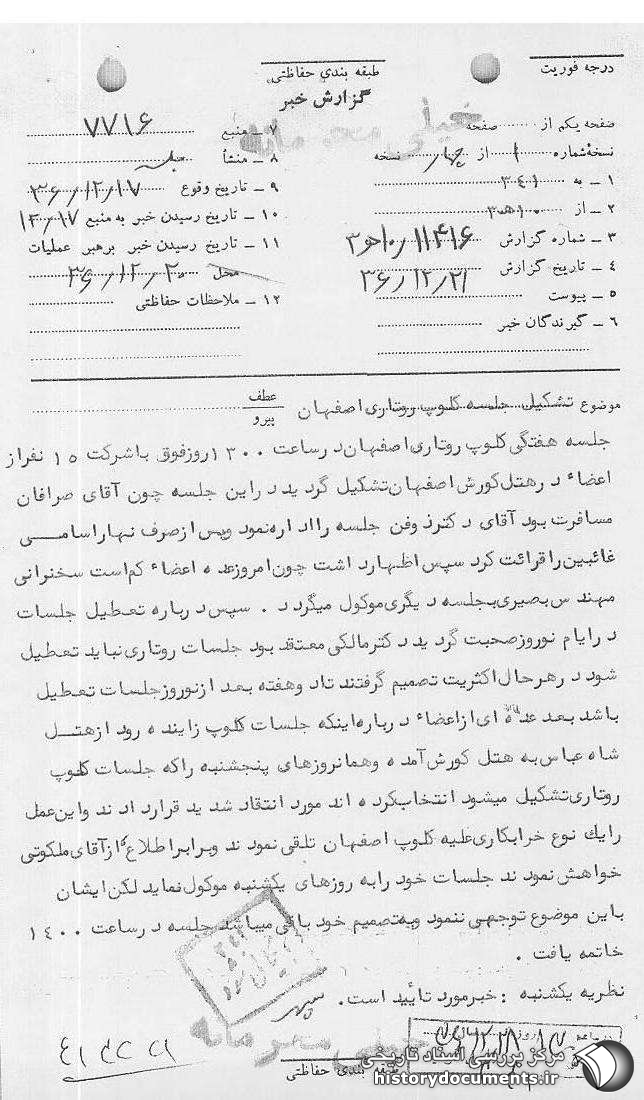 درجه فوریت
طبقه بندی حفاظتی
گزارش خبر
خیلی محرمانه
صفحه یکم از صفحه
نسخهٔ شماره ۱ از چهار نسخه
۱ ــ به ۳۴۱
۲ ــ از ۳۵۱۰
۳ ــ شماره گزارش ۳۵۱۰/۱۱۴۱۶
۴ ــ تاریخ گزارش ۳۶/۱۲/۲۱
۵ ــ پیوست
۶ ــ گیرندگان خبر
۷ ــ منبع ۷۷۱۶
۸ ــ منشأ
۹ ــ تاریخ وقوع ۳۶/۱۲/۱۷
۱۰ ــ تاریخ رسیدن خبر به منبع ۱۲/۱۷
۱۱ ــ تاریخ رسیدن خبر برهبر عملیات
محل ۳۶/۱۲/۲۰
۱۲ ــ ملاحظات حفاظتی
موضوع تشکیل جلسه کلوپ روتاری اصفهان
عطف
پیرو
جلسه هفتگی کلوپ روتاری اصفهان در ساعت ۱۳۰۰ روز فوق با شرکت ۱۵ نفر از
اعضاء در هتل کورش اصفهان تشکیل گردید در این جلسه چون آقای صرافان
مسافرت بود آقای دکتر ذوفن جلسه را اداره نمود و پس از صرف نهار اسامی
غائبین را قرائت کرد سپس اظهار داشت چون امروز عده اعضاء کم است سخنرانی
مهندس بصیری بجلسه دیگری موکول میگردد . سپس درباره تعطیل جلسات
در ایام نوروز صحبت گردید دکتر مالکی معتقد بود جلسات روتاری نباید تعطیل
شود در هر حال اکثریت تصمیم گرفتند تا دو هفته بعد از نوروز جلسات تعطیل
باشد بعد عده ای از اعضاء درباره اینکه جلسات کلوپ زاینده رود از هتل
شاه عباس به هتل کورش آمده و همان روزهای پنجشنبه را که جلسات کلوپ
روتاری تشکیل میشود انتخاب کرده اند مورد انتقاد شدید قرار دادند و این عمل
را یک نوع خرابکاری علیه کلوپ اصفهان تلقی نمودند و برابر اطلاع از آقای ملکوتی
خواهش نمودند جلسات خود را به روزهای یکشنبه موکول نماید لکن ایشان
باین موضوع توجهی ننمود و به تصمیم خود باقی میباشد جلسه در ساعت ۱۴۰۰
خاتمه یافت .
نظریه یکشنبه : خبر مورد تأیید است .
طبقه بندی حفاظتی
خیلی محرمانه
مرکز بررسی اسناد تاریخی
historydocuments.ir